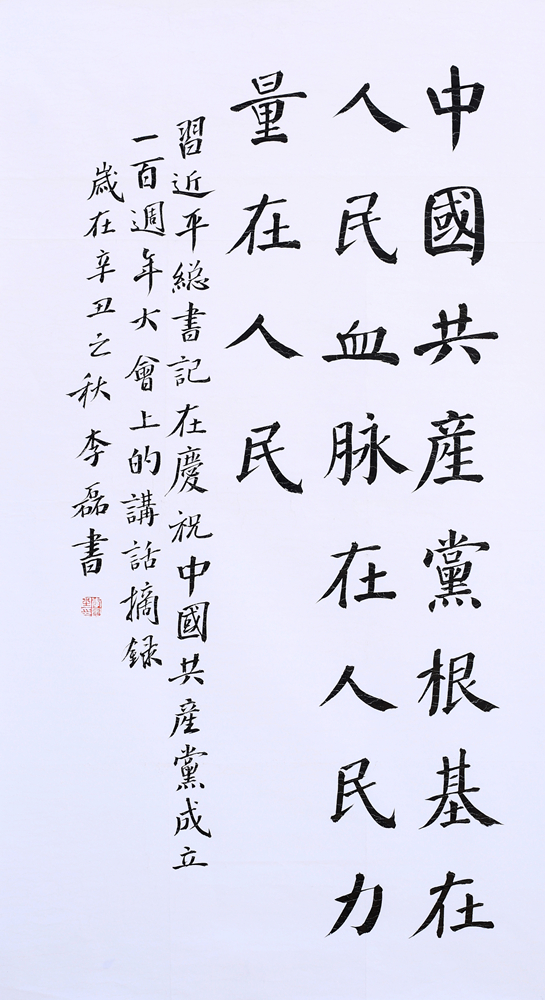 中國共産黨根基在
人民血脉在人民力
量在人民
習近平總書記在慶祝中國共産黨成立
一百週年大會上的講話摘録
歲在辛丑之秋 李磊書